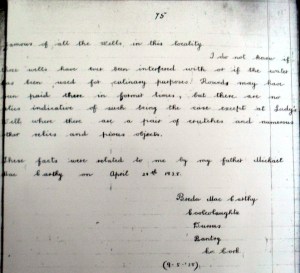 75
famous of all the wells in this locality.
I do not know if
these wells have ever been interfered with or if the water
has been used for culinary purposes. Rounds may have
been paid there in former times, but there are no
relics indicative of such being the case except at Lady's
Well where there are a pair of crutches and numerous
other relics and pious objects.
These facts were related to me by my father Michael
Mac Carthy on April 29th 1938.
Breda Mac Carthy
Coolcoulaghta
Durrus
Bantry
Co. Cork
(9-5-'38)